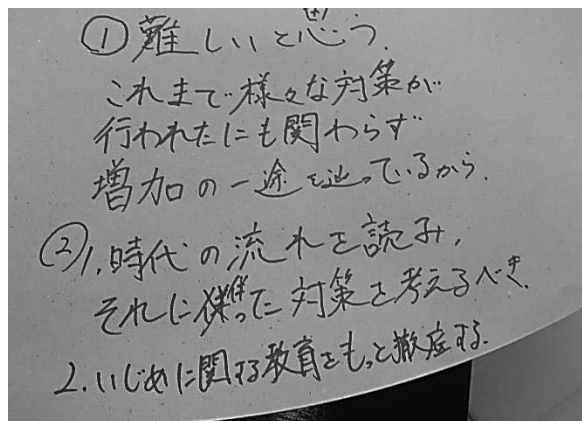 ①難しいと思う.
これまで様々な対策が
行われたにも関わらず
増加の一途を辿っているから.
②1.時代の流れを読み,
それに伴った対策を考えるべき.
2.いじめに関する教育をもっと徹底する.